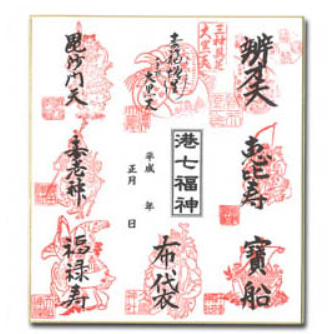 辨才天
恵比寿
寶船
三神具足
大黒天
大黒天
港七福神
平成　年
正月　日
布袋
毘沙門天
寿老神
福禄寿